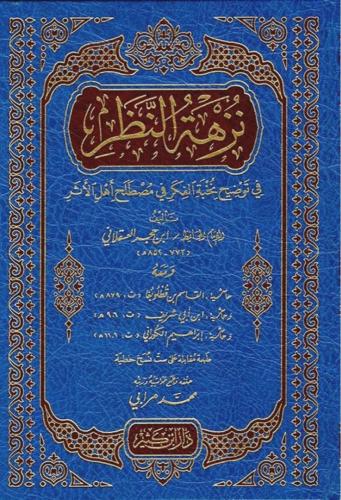 نُزْهَةُ النَّظَرِ
في توضيح نخبة الفكر في مصطلح أهل الأثر
تأليف
الإمام الحافظ / ابن حجر العسقلاني
(٧٧٣ - ٨٥٢ هـ)
ومعه
حاشية : القاسم بن قطلوبغا (ت : ٨٧٩ هـ)
وحاشية : ابن أبي شريف (ت : ٩٠٦ هـ)
وحاشية : إبراهيم الكوراني (ت : ١١٠١ هـ)
طبعة مقابلة على ست نسخ خطية
محمد مرابي
دار ابن كثير